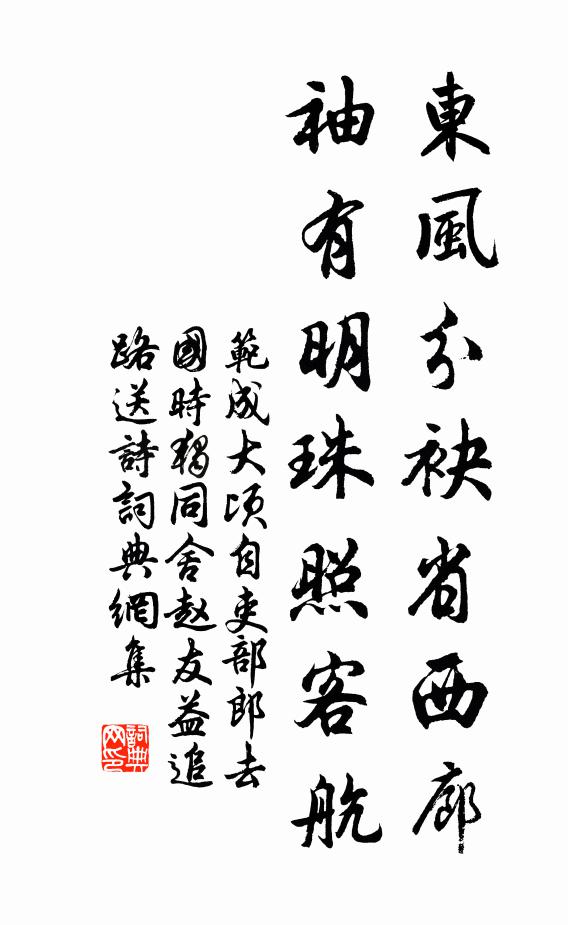 東風分袂省西廊
袖有明珠照客航
範成大頃自吏部郎去
國時獨同舍赵友益追
路送詩詞典網集
詞典
网印